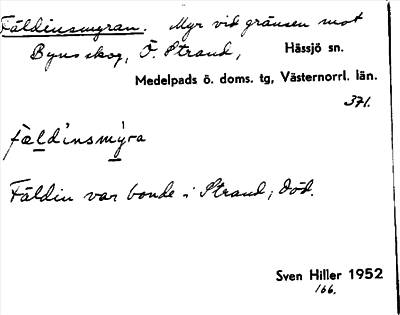 Fäldinsmyran. Myr vid gränsen mot
Byns skog, Ö. Strand, Hässjö sn.
Medelpads ö. doms. tg, Västernorrl. län.
371.
fæld'insmy̍ra
Fäldin var bonde i Strand, död.
Sven Hiller 1952
166.